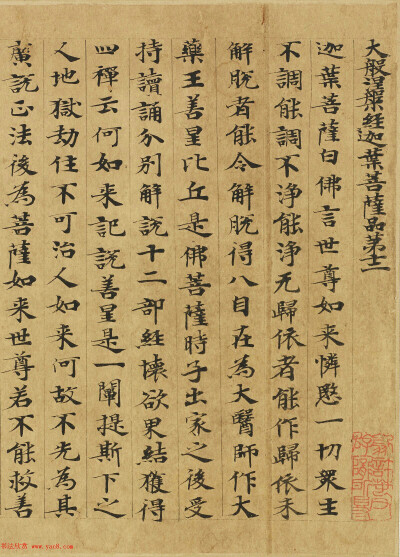 大般涅槃經迦葉菩薩品第十二
迦葉菩薩白佛言世尊如来憐愍一切衆生
不調能調不淨能淨无歸依者能作歸依未
解脫者能令解脫得八自在為大醫師作大
藥王善星比丘是佛菩薩時子出家之後受
持讀誦分別解說十二部經懷欲界結獲得
四禪云何如来記說善星是一闡提斯下之
人地獄劫住不可治人如来何故不先為其
廣說正法後為菩薩如来世尊若不能救善
书法欣赏 www.yac8.com